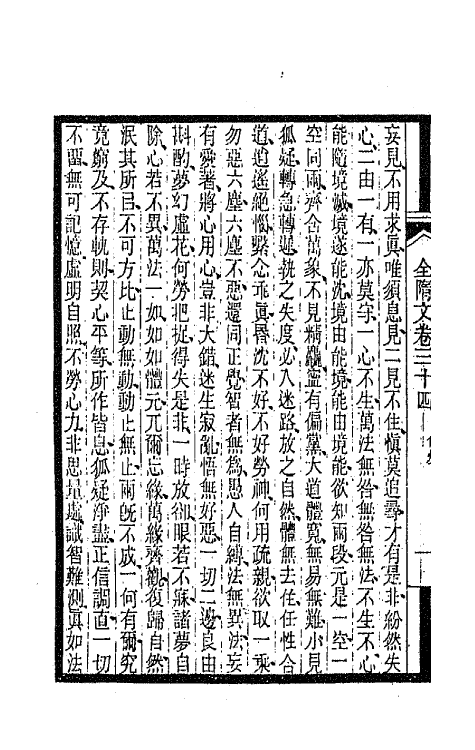 全隋文卷三十四
妄見不用求眞唯須息見二見不住愼莫追尋才有是非紛然失
心二由一有一亦莫守一心不生萬法無咎無咎無法不生不心
能隨境滅境逐能沈境由能境能由境能欲知兩段元是一空一
空同兩齊含萬象不見精麤寧有偏黨大道體寬無易無難小見
狐疑轉急轉遲執之失度必入迷路放之自然體無去住任性合
道逍遙絕惱繫念乖眞昬沈不好不好勞神何用疏親欲取一乘
勿惡六塵六塵不惡還同正覺智者無爲愚人自縛法無異法妄
有愛著將心用心豈非大錯迷生寂亂悟無好惡一切二邊良由
斟酌夢幻虛花何勞把捉得失是非一時放卻眼若不寐諸夢自
除心若不異萬法一如如如體元兀爾忘緣萬緣齊觀復歸自然
泯其所㠯不可方比止動無動動止無止兩旣不成一何有爾究
竟窮及不存軌則契心平等所作皆息狐疑淨盡正信調直一切
不留無可記憶虛明自照不勞心力非思量處識智難測眞如法